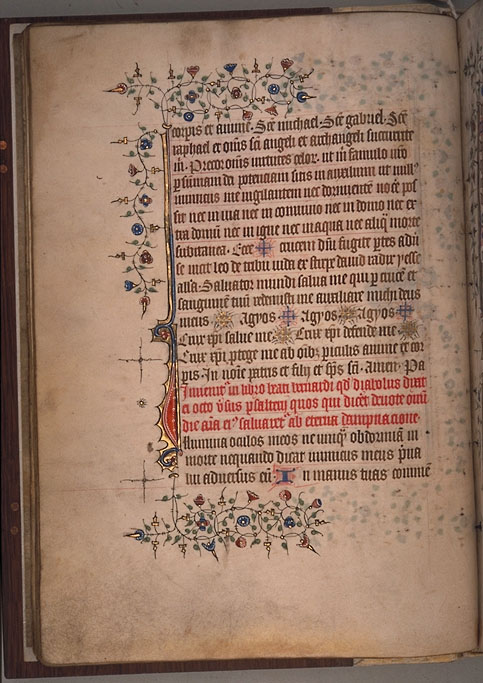 corpis et anime. Sce michael. Sce gabriel. Sce
raphael et oms sci angeli et archangeli succurrite
m. Precor oms virtutes celor. ut m famulo vro
p summam dei potenciam sitis in auxilium ut null
inimicus me vigilantem nec dormiente nocere pos
sit nec in via nec in convivio nec in domo nec ex
tra domum nec in igne nec in aqua nec aliqua morte
subitanea. Ecce crucem dni fugite ptes adv
se vicit leo de tribu iuda ex stirpe david radix yesse
alla. Salvator mundi salva me qui p cruce et
sanguinem tuu redemisti me auxiliare michi deus
meus Agyos Agyos Agyos
Crux xpi salve me Crux xpi defende me
Crux xpi protege me ab oibz periculis anime et cor
pis. In noie patris et filij et sps sci. Amen. Pa
Invenit in libro beati bernardi qd diabolus dixit
ei octo vsus psalterij quos qui dicet devote omi
die aia ei salvaret ab eterna dampnacione
Illumina oculos meos ne umq obdormia in
morte nequando dicat inimicus meus preva
lui adversus eu In manus tuas comme